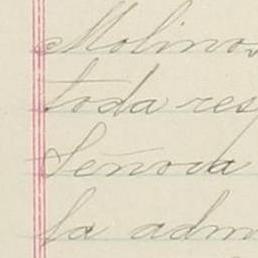 Molinos
toda res
Señora
la adm